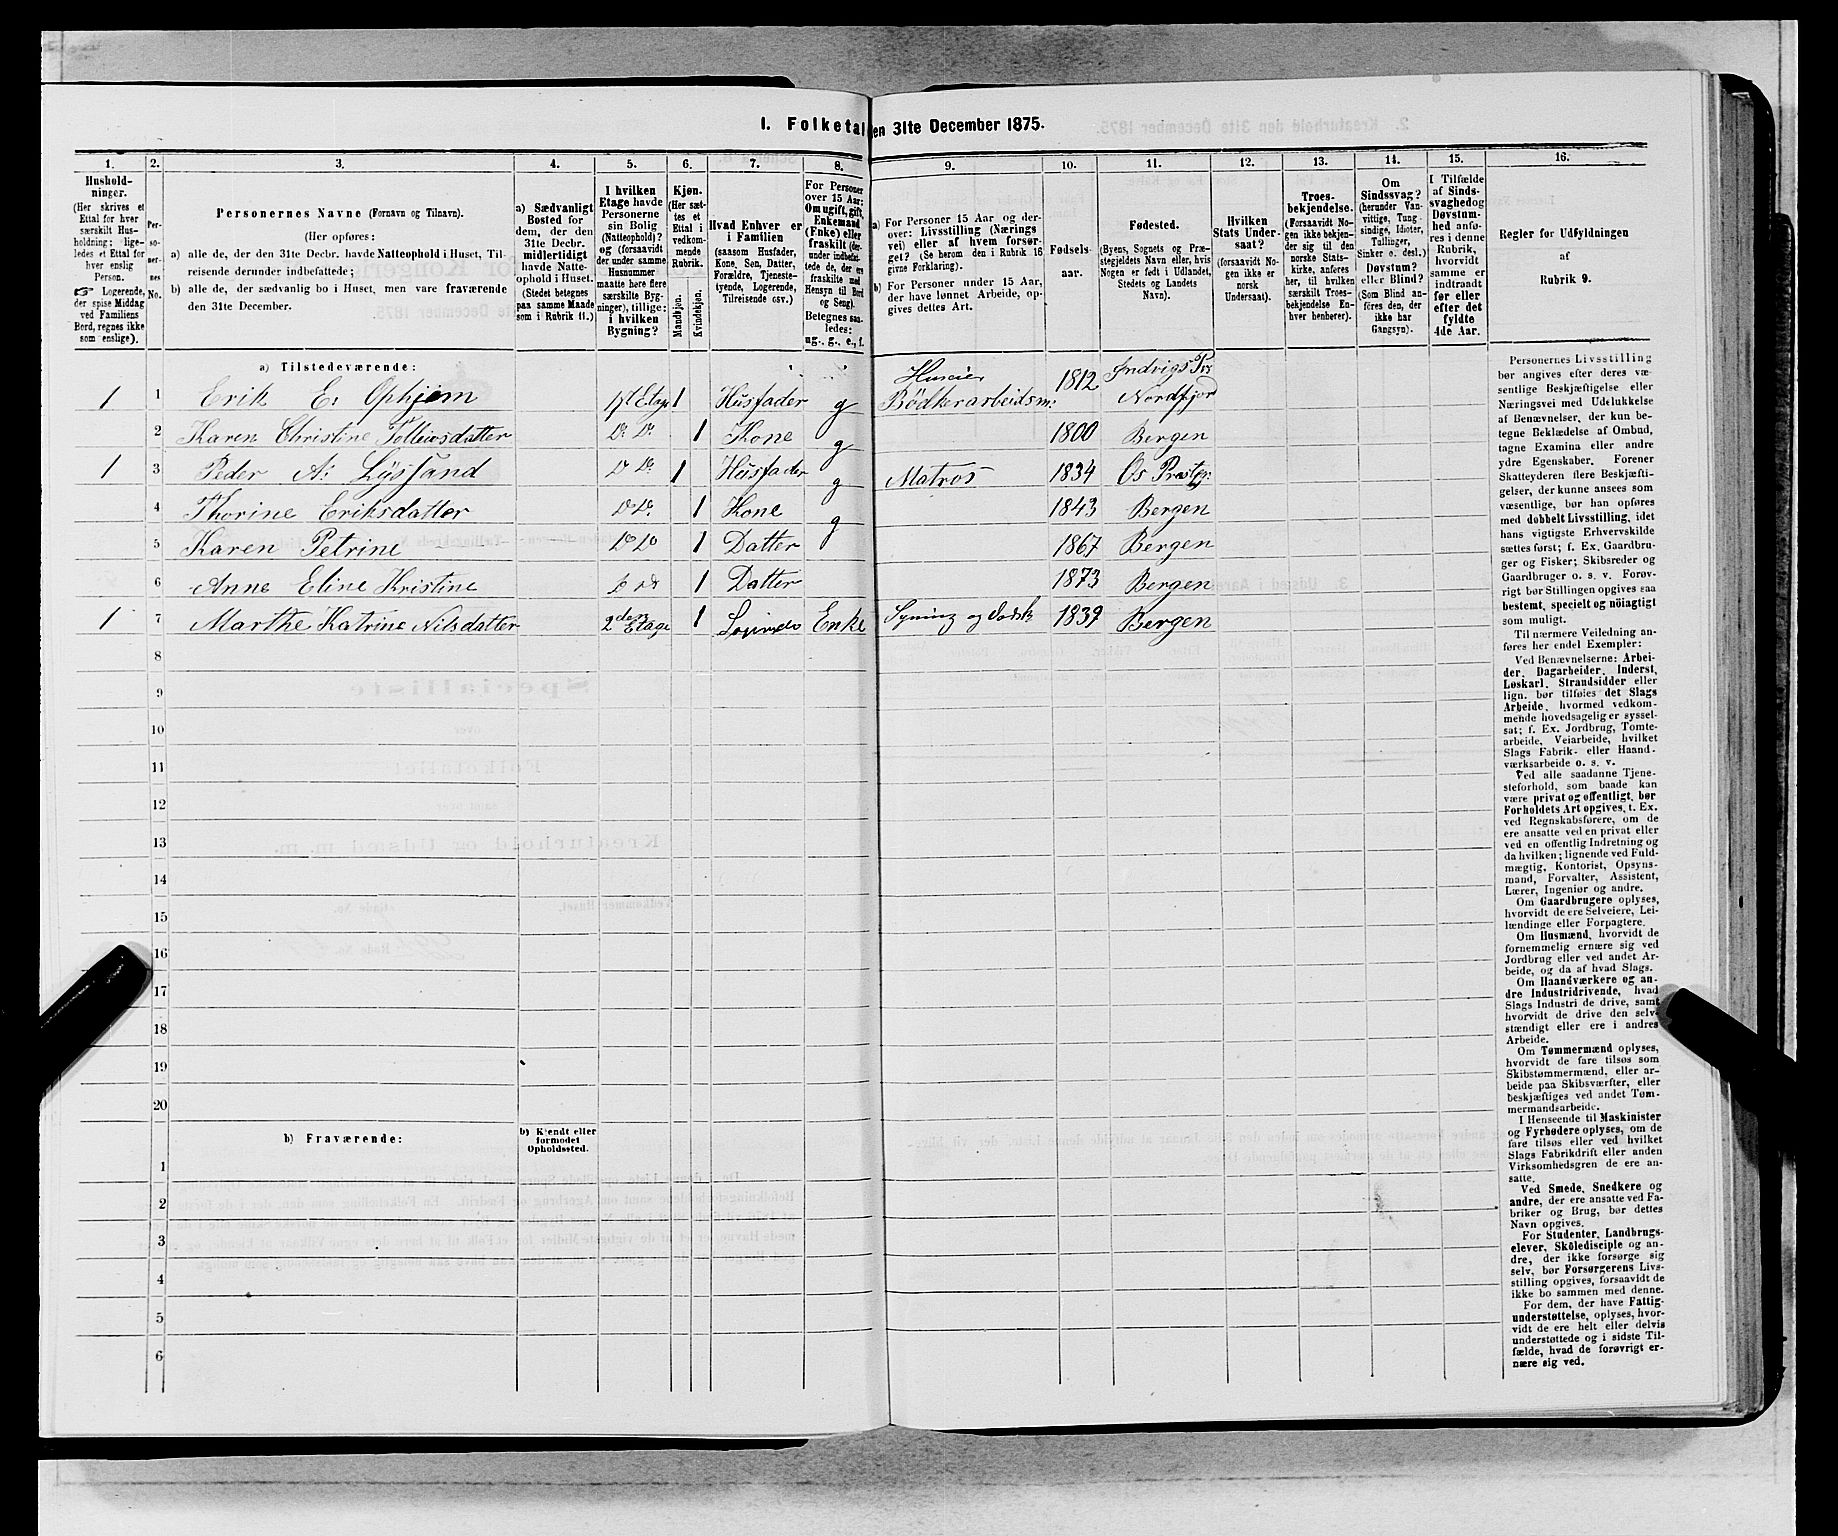 1. Folketal den 31te December 1875.
1.
2.
3.
4.
5.
6.
7.
8.
9.
10.
11.
12.
13.
14.
15.
16.
Hushold-
ninger.
(Her skrives et
Ettal for hver
særskilt Hus-
holdning; lige-
ledes et Ettal for
hver enslig
Person.
☞ Logerende,
der spise Middag
ved Familiens
Bord, regnes ikke
som enslige).
Per-
so-
ner-
nes
No.
Personernes Navne (Fornavn og Tilnavn).
(Her opføres:
a) alle de, der den 31te Decbr. havde Natteophold i Huset, Til-
reisende derunder indbefattede;
b) alle de, der sædvanlig bo i Huset, men vare fraværende
den 31te December.
a) Sædvanligt
Bosted for
dem, der den
31te Decbr.
midlertidigt
havde Natte-
ophold i Huset.
(Stedet betegnes
paa samme Maade
som i Rubrik 11.)
I hvilken
Etage havde
Personerne
sin Bolig
(Natteophold)?
og (forsaavidt
der under samme
Husnummer
maatte høre flere
særskilte Byg-
ninger), tillige:
i hvilken
Bygning?
Kjøn.
(Her sæt-
tes et
Ettal i
vedkom-
mende
Rubrik.
Mandkjøn.
Kvindekjøn.
Hvad Enhver er
i Familien
(saasom Husfader,
Kone, Søn, Datter,
Forældre, Tjeneste-
tyende, Logerende,
Tilreisende osv.)
For Personer
over 15 Aar:
Om ugift, gift,
Enkemand
(Enke) eller
fraskilt (der-
under indbefat-
tede de, der ere
fraskilte med
Hensyn til Bord
og Seng).
Betegnes saa-
ledes:
ug., g., e., f.
a) For Personer 15 Aar og der-
over: Livsstilling (Nærings
vei) eller af hvem forsør-
get? (Se herom den i Rubrik 16
givne Forklaring).
b) For Personer under 15 Aar,
der have lønnet Arbeide, op-
gives dettes Art.
Fødsels-
aar.
Fødested.
(Byens, Sognets og Præ-
stegjeldets Navn eller, hvis
Nogen er født i Udlandet,
Stedets og Landets
Navn).
Hvilken
Stats Under-
saat?
(forsaavidt No-
gen ikke er
norsk
Undersaat).
Troes-
bekjendelse.
(Forsaavidt No-
gen ikke bekjen-
der sig til den
norske Stats-
kirke, anføres
her, til hvilken
særskilt Troes-
bekjendelse En-
hver henhører).
Om
Sindssvag?
(herunder Van-
vittige, Tung-
sindige, Idioter,
Tullinger,
Sinker o. desl.)
Døvstum?
eller Blind?
(Som Blind an-
føres den, der
ikke har
Gangsyn).
I Tilfælde
af Sinds-
svaghed og
Døvstum-
hed anfø-
res i denne
Rubrik,
hvorvidt
samme er
indtraadt
før eller
efter det
fyldte
4de Aar.
Regler for Udfyldningen
af
Rubrik 9.
a) Tilstedeværende:
1 1 Erik E. Ophjem 1st Etage 1 Husfader g Huseier Bödkerarbeidsm: 1812 Indvigs Pr Nordfjord
2 Karen Christine Tolleivsdatter Do Do 1 Kone g 1800 Bergen
1 3 Peder A: Lyssand Do Do 1 Husfader g Matros 1834 Os Præstegj:
4 Thorine Eriksdatter Do Do 1 Kone g 1843 Bergen
5 Karen Petrine Do Do 1 Datter 1867 Bergen
6 Anne Eline Kristine 1 Datter 1873 Bergen
1 7 Marthe Katrine Nilsdatter 2den Etage 1 Enke Syning og Vadsk 1839 Bergen
8
9
10
11
12
13
14
15
16
17
18
19
20
b) Fraværende:
b) Kjendt eller
formodet
Opholdssted.
1
2
3
4
5
6
Personernes Livsstilling
bør angives efter deres væ-
sentlige Beskjæftigelse eller
Næringsvei med Udelukkelse
af Benævnelser, der kun be-
tegne Beklædelse af Ombud,
tagne Examina eller andre
ydre Egenskaber. Forener
Skatteyderen flere Beskjæfti-
gelser, der kunne ansees som
væsentlige, bør han opføres
med dobbelt Livsstilling, idet
hans vigtigste Erhvervskilde
sættes først; f. Ex. Gaardbru-
ger og Fisker; Skibsreder og
Gaardbruger o. s. v. Forøv-
rigt bør Stillingen opgives saa
bestemt, specielt og nöiagtigt
som muligt.
Til nærmere Veiledning an-
føres her endel Exempler:
Ved Benævnelserne: Arbei-
der, Dagarbeider, Inderst,
Løskarl, Strandsidder eller
lign. bør tilføies det Slags
Arbeide, hvormed vedkom-
mende hovedsagelig er syssel-
sat; f. Ex. Jordbrug, Tomte-
arbeide, Veiarbeide, hvilket
Slags Fabrik- eller Haand-
værksarbeide o. s. v.
Ved alle saadanne Tjene-
steforhold, som baade kan
være privat og offentligt, bør
Forholdets Art opgives, t. Ex.
ved Regnskabsførere, om de
ere ansatte ved en privat eller
ved en offentlig Indretning og
da hvilken; lignende ved Fuld-
mægtig, Kontorist, Opsyns-
mand, Forvalter, Assistent,
Lærer, Ingeniør og andre.
Om Gaardbrugere oplyses,
hvorvidt de ere Selveiere, Lei-
lændinge eller Forpagtere.
Om Husmænd, hvorvidt de
fornemmelig ernære sig ved
Jordbrug eller ved andet Ar-
beide, og da af hvad Slags.
Om Haandværkere og an-
dre Industridrivende, hvad
Slags Industri de drive, samt
hvorvidt de drive den selv-
stændigt eller ere i andres
Arbeide.
Om Tømmermænd oplyses,
hvorvidt de fare tilsøs som
Skibstømmermænd, eller ar-
beide paa Skibsværfter, eller
beskjæftiges ved andet Tøm-
mermandsarbeide.
I Henseende til Maskinister
og Fyrbødere oplyses, om de
fare tilsøs eller ved hvilket
Slags Fabrikdrift eller anden
Virksomhedsgren de ere an-
satte.
Ved Smede, Snedkere og
andre, der ere ansatte ved Fa-
briker og Brug, bør dettes
Navn opgives.
For Studenter, Landbrugs-
elever, Skoledisciple og an-
dre, der ikke forsørge sig
selv, bør Forsørgerens Livs-
stilling opgives, forsaavidt de
ikke bo sammen med denne.
For dem, der have Fattig-
understøttelse, oplyses, hvor-
vidt de ere helt eller delvis
understøttede og i sidste Til-
fælde, hvad de forøvrigt er-
nære sig ved.